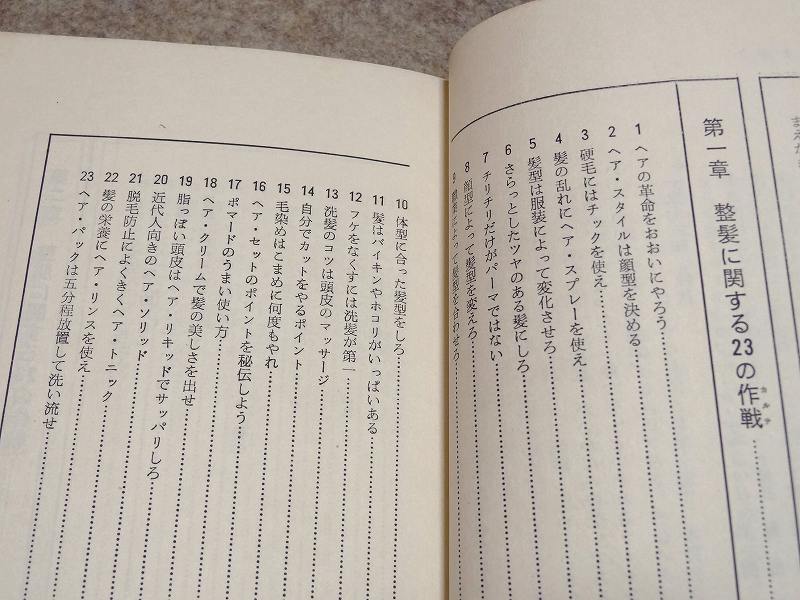 まえが
第一章 整髪に関する23の作戦
カルテ
1 ヘアの革命をおおいにやろう
2 ヘア・スタイルは顔型を決める
3 硬毛にはチックを使え
4 髪の乱れにヘア・スプレーを使え
5 髪型は服装によって変化させろ
6 さらっとしたツヤのある髪にしろ
7 チリチリだけがパーマではない
8 顔型によって髪型を変えろ
9 職業によって髪型を合わせろ
10 体型に合った髪型をしろ
11 髪はバイキンやホコリがいっぱいある
12 フケをなくすには洗髪が第一
13 洗髪のコツは頭皮のマッサージ
14 自分でカットをやるポイント
15 毛染めはこまめに何度もやれ
16 ヘア・セットのポイントを秘伝しよう
17 ポマードのうまい使い方
18 ヘア・クリームで髪の美しさを出せ
19 脂っぽい頭皮はヘア・リキッドでサッパリしろ
20 近代人向きのヘア・ソリッド
21 脱毛防止によくきくヘア・トニック
22 髪の栄養にヘア・リンスを使え
23 ヘア・パックは五分程放置して洗い流せ